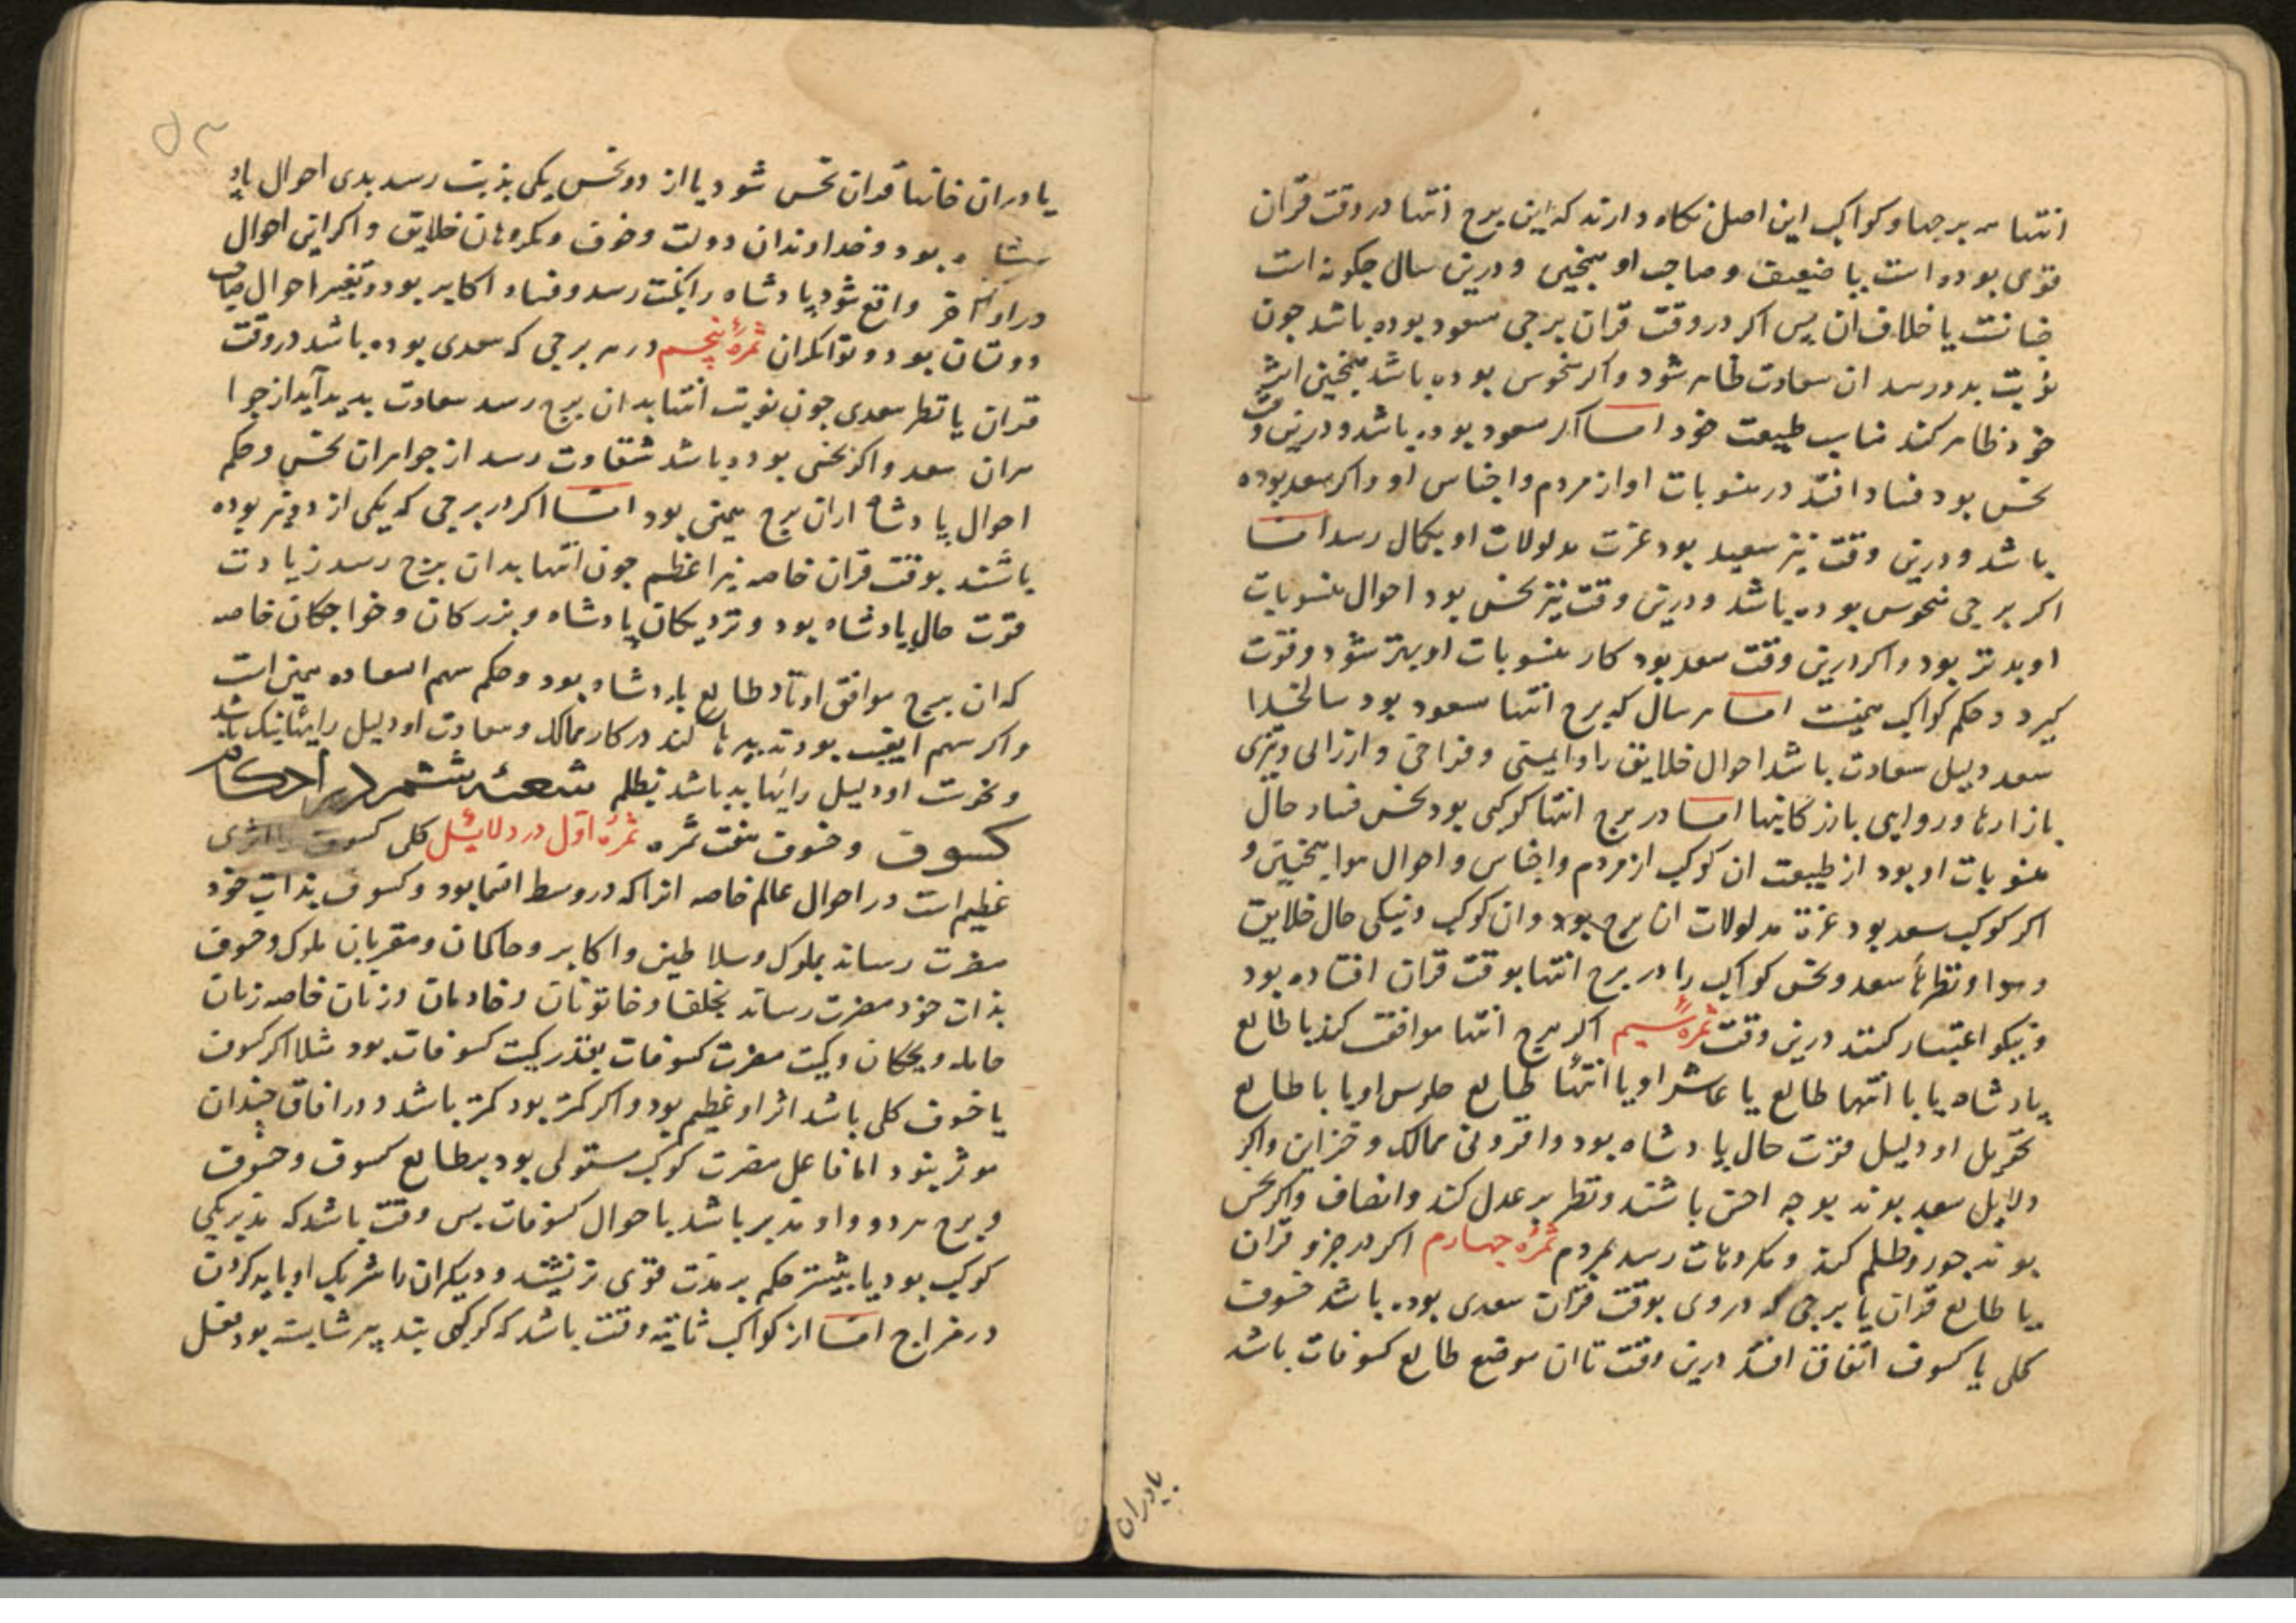 انتها هر برجها و کواکب این اصل نکاه دارند که این برج انتها در وقت قران
قوی بوده است یا ضعیف و صاحب او همچنین و درین سال چکونه است
چنانست یا خلاف ان پس اکر در وقت قران برجی مسعود بوده باشد چون
نوبت بدو رسد ان سعادت ظاهر شود و اکر منحوس بوده باشد همچنین اثر
خود ظاهر کند مناسب طبیعت خود اما اکر مسعود بوده باشد و درین وقت
نحس بود فساد افتد در منسوبات او از مردم و اجناس او و اکر سعد بوده
باشد و درین وقت نیز سعید بود عزت مدلولات او بکمال رسد اما
اکر برجی منحوس بوده باشد و درین وقت نیز نحس بود احوال منسوبات
او بدتر بود و اکر درین وقت سعد بود کار منسوبات او بهتر شود و قوت
کیرد و حکم کواکب همینست اما هر سال که برج انتها مسعود بود سالخدا
سعد دلیل سعادت باشد احوال خلایق را و ایمنی و فراخی و ارزانی و تیزی
بازارها و روایی بازرکانیها اما در برج انتها کوکبی بود نحس فساد حال
منسوبات او بود از طبیعت ان کوکب از مردم و اجناس و احوال هوا همچنین و
اکر کوکب سعد بود عزة مدلولات ان برج بود و ان کوکب و نیکی حال خلایق
و هوا و نظرهاء سعد و نحس کواکب را در برج انتها بوقت قران افتاده بود
و نیکو اعتبار کنند درین وقت ثمرهٔ سیم اکر برج انتها موافقت کند با طالع
پادشاه یا با انتها طالع یا عاشر او یا انتهاء طالع جلوس او یا با طالع
تحویل او دلیل قوت حال پادشاه بود و افزونی ممالک و خزاین و اکر
دلایل سعد بوند بوجه احسن باشند و نظر بر عدل کند و انصاف و اکر نحس
بوند جور و ظلم کند و مکروهات رسد بمردم ثمرهٔ چهارم اکر در جزو قران
یا طالع قران یا برجی که در وی بوقت قران سعدی بوده باشد خسوف
کلی یا کسوف اتفاق افتد درین وقت تا ان موضع طالع کسوفات باشد
یا دران
۵۳
یا دران خانها قران نحس شود یا از دو نحس یکی بذیت رسد بدی احوال پاد
شاه بود و خداوندان دولت و خوف و مکروهات خلایق و اکر این احوال
در اواخر واقع شود پادشاه را نکبت رسد و فساد اکابر بود و تغیر احوال
دوستان بود و توانکران ثمرهٔ پنجم در هر برجی که سعدی بوده باشد در وقت
قران یا نظر سعدی چون نوبت انتها بدان برج رسد سعادت پدید آید از جوا
هران سعد و اکر نحس بوده باشد شقاوت رسد از جواهران نحس و حکم
احوال پادشاه ازان برج همین بود اما اکر در برجی که یکی از دو نیر بوده
باشند بوقت قران خاصه نیر اعظم چون انتها بدان برج رسد زیادت
قوت حال پادشاه بود و نزدیکان پادشاه و بزرکان و خواجکان خاصه
که ان برج موافق اوتاد طالع پادشاه بود و حکم سهم السعاده همین است
و اکر سهم الغیب بود تدبیرها کند در کار ممالک و سعادت او دلیل رایهاء نیک باشد
و نحوست او دلیل رایهاء بد باشد بظلم شعبه ششم در احکام
کسوف و خسوف هفت ثمره ثمرهٔ اول در دلایل کلی کسوف را اثری
عظیم است در احوال عالم خاصه انرا که در وسط السما بود و کسوف بذات خود
مضرت رساند بملوک و سلاطین و اکابر و حاکمان و مقربان ملوک و خسوف
بذات خود مضرت رساند بخلفا و خاتونان و خادمان و زنان خاصه زنان
حامله و بچکان و کمیت مضرت کسوفات بقدر کمیت کسوفات بود مثلا اکر کسوف
یا خسوف کلی باشد اثر او عظیم بود و اکر کمتر بود کمتر باشد و در افاق چندان
موثر نبود اما فاعل مضرت کوکب مستولی بود بر طالع کسوف و خسوف
و برج هر دو و او مدبر باشد باحوال کسوفات پس وقت باشد که مدبر یکی
کوکب بود یا بیشتر حکم بر مذت قوی تر نیستند و دیکران را شریک او باید کردن
در مزاج اما از کواکب ثابته وقت باشد که کوکبی بتدبیر شایسته بود بفعل